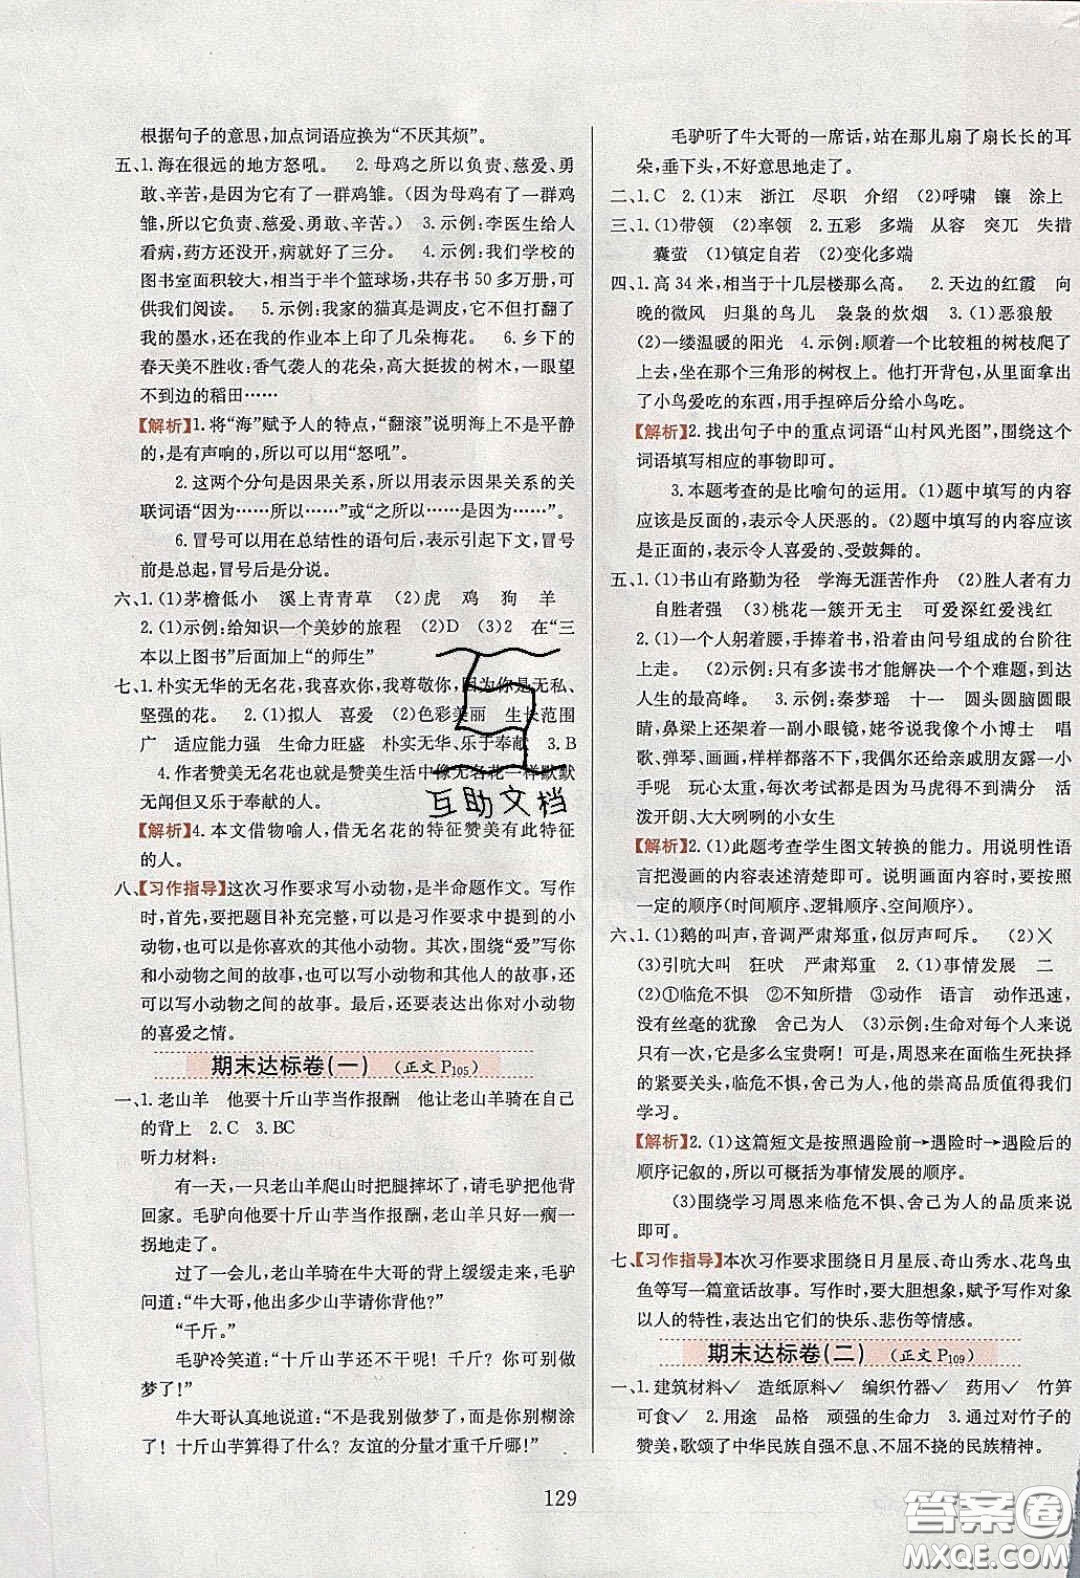 根据句子的意思,加点词语应换为“不厌其烦”。
五、1.海在很远的地方怒吼。 2.母鸡之所以负责、慈爱、勇
敢、辛苦,是因为它有了一群鸡雏。(因为母鸡有了一群鸡
雏,所以它负责、慈爱、勇敢、辛苦。) 3.示例:李医生给人
看病,药方还没开,病就好了三分。 4.示例:我们学校的
图书室面积较大,相当于半个篮球场,共存书 50 多万册,可
供我们阅读。 5.示例:我家的猫真是调皮,它不但打翻了
我的墨水,还在我的作业本上印了几朵梅花。 6.乡下的
春天美不胜收:香气袭人的花朵,高大挺拔的树木,一眼望
不到边的稻田……
【解析】1.将“海”赋予人的特点,“翻滚”说明海上不是平静
的,是有声响的,所以可以用“怒吼”。
2.这两个分句是因果关系,所以用表示因果关系的关
联词语“因为……所以……”或“之所以……是因为……”。
6.冒号可以用在总结性的语句后,表示引起下文,冒号
前是总起,冒号后是分说。
六、1.(1)茅檐低小 溪上青青草 (2)虎 鸡 狗 羊
2.(1)示例:给知识一个美妙的旅程 (2)D (3)2 在“三
本以上图书”后面加上“的师生”
七、1.朴实无华的无名花,我喜欢你,我尊敬你,因为你是无私、
坚强的花。 2.(1)拟人 喜爱 (2)色彩美丽 生长范围
广 适应能力强 生命力旺盛 朴实无华、乐于奉献 3.B
4.作者赞美无名花也就是赞美生活中像无名花一样默默
无闻但又乐于奉献的人。
【解析】4.本文借物喻人,借无名花的特征赞美有此特征
的人。
八、【习作指导】这次习作要求写小动物,是半命题作文。写作
时,首先,要把题目补充完整,可以是习作要求中提到的小
动物,也可以是你喜欢的其他小动物。其次,围绕“爱”写你
和小动物之间的故事,也可以写小动物和其他人的故事,还
可以写小动物之间的故事。最后,还要表达出你对小动物
的喜爱之情。
期末达标卷(一) (正文 P105)
一、1.老山羊 他要十斤山芋当作报酬 他让老山羊骑在自己
的背上 2.C 3.BC
听力材料:
有一天,一只老山羊爬山时把腿摔坏了,请毛驴把他背
回家。毛驴向他要十斤山芋当作报酬,老山羊只好一瘸一
拐地走了。
过了一会儿,老山羊骑在牛大哥的背上缓缓走来,毛驴
问道:“牛大哥,他出多少山芋请你背他?”
“千斤。”
毛驴冷笑道:“十斤山芋还不干呢!千斤?你别做
梦了!”
牛大哥认真地说道:“不是我别做梦了,而是你别糊涂
了!十斤山芋算得了什么?友谊的分量才重千斤哪!”
毛驴听了牛大哥的一席话,站在那儿扇了扇长长的耳
朵,垂下头,不好意思地走了。
二、1.C 2.(1)末 浙江 尽职 介绍 (2)呼啸 镶 涂上
三、1.(1)带领 (2)率领 2.五彩 多端 从容 突兀 失措
囊萤 (1)镇定自若 (2)变化多端
四、1.高 34 米,相当于十几层楼那么高。 2.天边的红霞 向
晚的微风 归巢的鸟儿 袅袅的炊烟 3.(1)恶狼般
(2)一缕温暖的阳光 4.示例:顺着一个比较粗的树枝爬了
上去,来到那个三角形的树杈上。他打开背包,从里面拿了
小鸟爱吃的东西,用手捏碎后分给小鸟吃。
【解析】2.找出句子中的重点词语“山村风光图”,围绕这个
词语填写相应的事物即可。
3.本题考查的是比喻句的运用。(1)题中填写的内容
应该是反面的,表示令人厌恶的。(2)题中填写的内容应该
是正面的,表示令人喜爱的、受鼓舞的。
五、1.(1)书山有路勤为径 学海无涯苦作舟 (2)胜人者有力
自胜者强 (3)桃花一簇开无主 可爱深红爱浅红
2.(1)一个人躬着腰,手捧着书,沿着由问号组成的台阶往
上走。 (2)示例:只有多读书才能解决一个个难题,到达
人生的最高峰。 3.示例:秦梦瑶 十一 圆头圆脑圆眼
睛,鼻梁上还架着一副小眼镜,姥爷说我像个小博士 唱
歌、弹琴、画画,样样都落不下。我偶尔还给亲戚朋友露一
手呢 玩心太重,每次考试都因为马虎得不到满分 活
泼开朗、大大咧咧的小女生
【解析】2.(1)此题考查学生图文转换的能力。用说明性语
言把漫画的内容表述清楚即可。说明画面内容,要按照
一定的顺序(时间顺序、逻辑顺序、空间顺序)。
六、1.(1)鹅的叫声,音调严肃郑重,似厉声呵斥。 (2)×
(3)引吭大叫 狂吠 严肃郑重 2.(1)事情发展 二
(2)①临危不惧 ②不知所措 ③动作 语言 动作迅速,
没有丝毫的犹豫 舍己为人 (3)示例:生命对每个人来
说,都是多么宝贵啊!可是,周恩来在面临生死抉择的
紧要关头,临危不惧,舍己为人,他的崇高品质值得我们
学习。
【解析】2.(1)这篇短文是按照遇险前→遇险时→遇险后的
顺序记叙的,所以可概括为事情发展的顺序。
(3)围绕学习周恩来临危不惧、舍己为人的品质来说
即可。
七、【习作指导】本次习作要求围绕日月星辰、奇山秀水、花鸟虫
鱼等写一篇童话故事。写作时,要大胆想象,赋予写作对象
以人的特性,表达出它们的快乐、悲伤等情感。
期末达标卷(二) (正文 P109)
一、1.建筑材料✓ 造纸原料✓ 编织竹器✓ 药用✓ 竹笋
可食✓ 2.用途 品格 顽强的生命力 3.通过对竹子的
赞美,歌颂了中华民族自强不息、不屈不挠的民族精神。
互助文档
129
答案圈
MXQE.COM